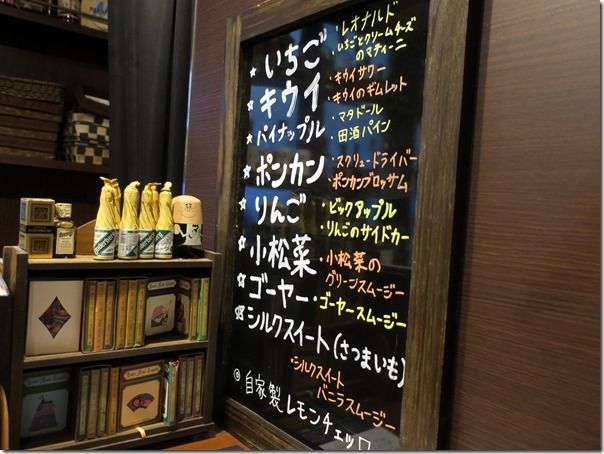 ☆いちご
・レオナルド
・いちごとクリームチーズ
のマティーニ
☆キウイ
・キウイサワー
・キウイのギムレット
☆パイナップル
・マタドール
・田酒パイン
☆ポンカン
・スクリュードライバー
・ポンカンブロッサム
☆りんご
・ビックアップル
・りんごのサイドカー
☆小松菜
・小松菜の
グリーンスムージー
☆ゴーヤー
・ゴーヤースムージー
☆シルクスイート(さつまいも)
・シルクスイート
バニラスムージー
◎自家製レモンチェッロ
Underberg